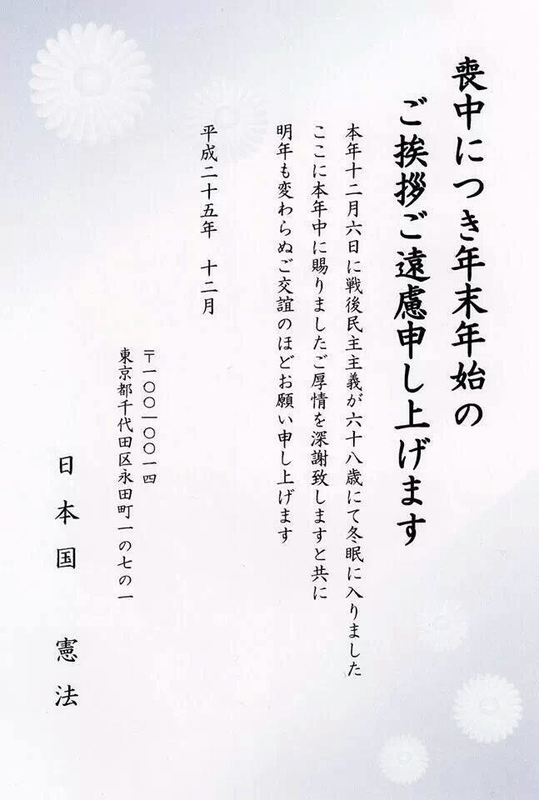 喪中につき年末年始の
ご挨拶ご遠慮申し上げます
本年十二月六日に戦後民主主義が六十八歳にて冬眠に入りました
ここに本年中に賜りましたご厚情を深謝致しますと共に
明年も変わらぬご交誼のほどお願い申し上げます
平成二十五年 十二月
〒一〇〇一〇〇一四
東京都千代田区永田町一の七の一
日本国 憲法